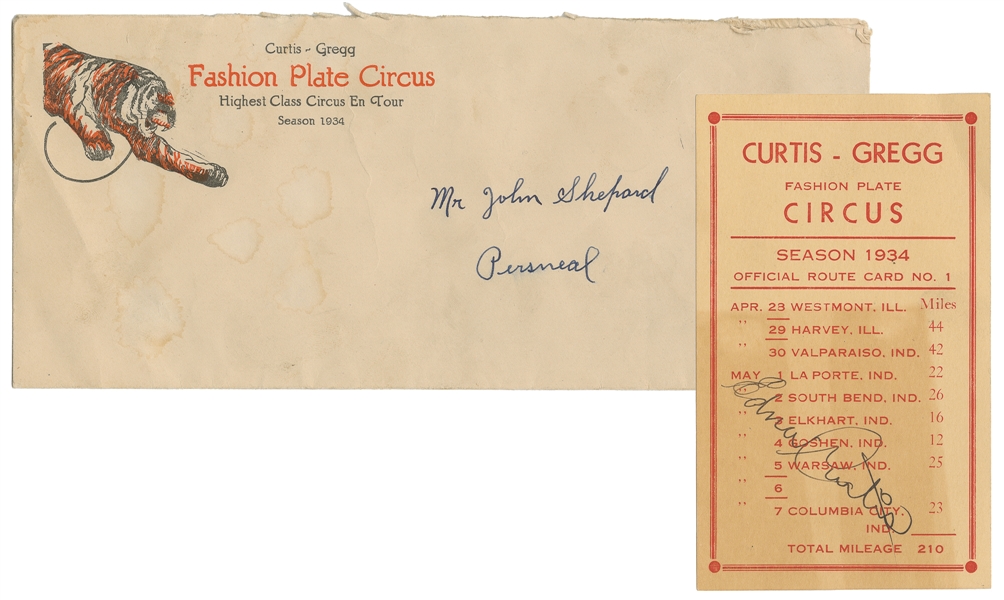 Curtis - Gregg
Fashion Plate Circus
Highest Class Circus En Tour
Season 1934
Mr John Shepard
Personeal
CURTIS - GREGG
FASHION PLATE
CIRCUS
SEASON 1934
OFFICIAL ROUTE CARD NO. 1
APR. 28 WESTMONT, ILL. Miles
" 29 HARVEY, ILL. 44
" 30 VALPARAISO, IND. 42
MAY 1 LA PORTE, IND. 22
" 2 SOUTH BEND, IND. 26
" 3 ELKHART, IND. 16
" 4 GOSHEN, IND. 12
" 5 WARSAW, IND. 25
" 6
" 7 COLUMBIA CITY, 23
IND.
TOTAL MILEAGE 210